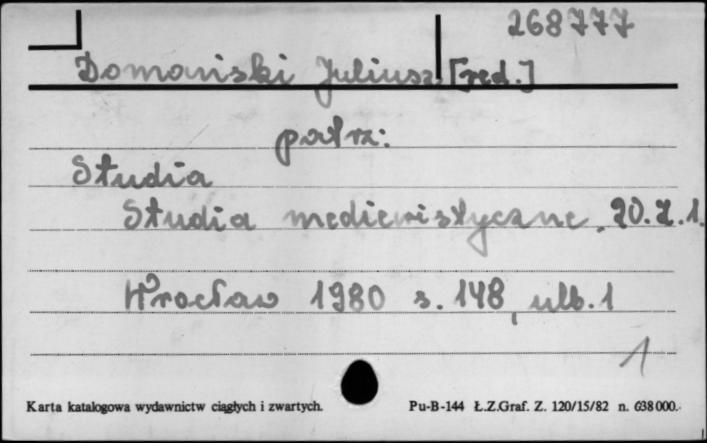 268777
Domański Juliusz [red.]
patrz:
Studia
Studia mediewistyczne. 20. Z. 1.
Wrocław 1980 s. 148, nlb. 1
1
Karta katalogowa wydawnictw ciągłych i zwartych. Pu-B-144 Ł.Z.Graf. Z. 120/15/82 n. 638000.